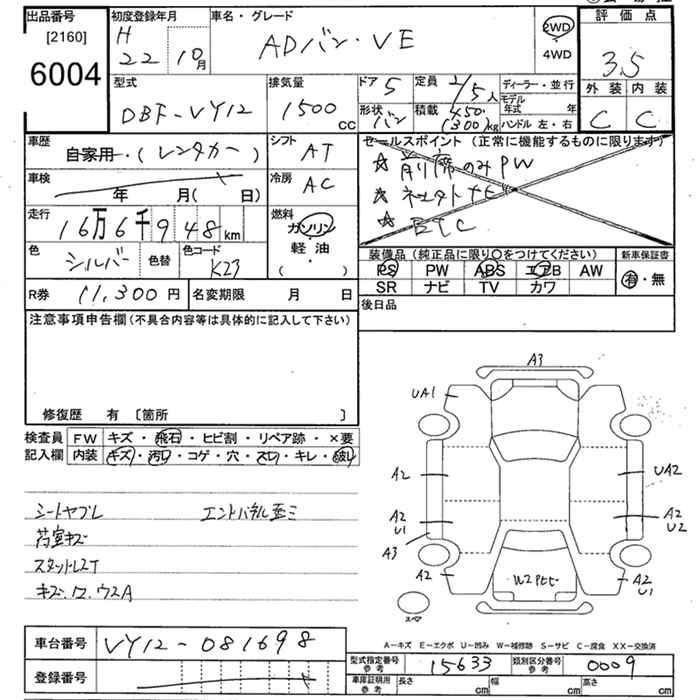 出品番号
[2160]
6004
初度登録年月
H 22 10月
車名・グレード
ADバン・VE
2WD
4WD
評価点
3.5
外装 内装
C C
型式
DBF-VY12
排気量
1500 cc
ドア 5
定員 2/5人
形状 バン
積載 450 (300)kg
ディーラー・並行
モデル年式 年
ハンドル 左・右
車歴
自家用・(レンタカー)
シフト AT
車検
年 月( 日)
冷房 AC
走行
16万6千948km
燃料
ガソリン
軽・油
( )
色 シルバー 色替
色コード K23
R券 11,300円
名変期限 月 日
セールスポイント (正常に機能するものに限ります)
☆ 前席のみPW
☆
☆ ETC
装備品 (純正品に限り○をつけてください)
PS PW ABS エアB AW
SR ナビ TV カワ
新車保証書
有・無
後日品
注意事項申告欄(不具合内容等は具体的に記入して下さい)
修復歴 有 〔箇所 〕
検査員記入欄
FW キズ・飛石・ヒビ割・リペア跡・×要
内装 キズ・汚れ・コゲ・穴・スレ・キレ・破れ
シートヤブレ エンドパネル歪ミ
荷室キズ
スタッドレスT
キズ.ワ.ウスA
A3
UA1
A2
UA2
A2 U1
A2 U2
A3
A2
A2 U1
スペア
A－キズ E－エクボ U－凹み W－補修跡 S－サビ C－腐食 XX－交換済
車台番号 VY12-081698
登録番号
型式指定番号 参考 15633
類別区分番号 参考 0009
車庫証明用 参考 長さ cm 幅 cm 高さ cm